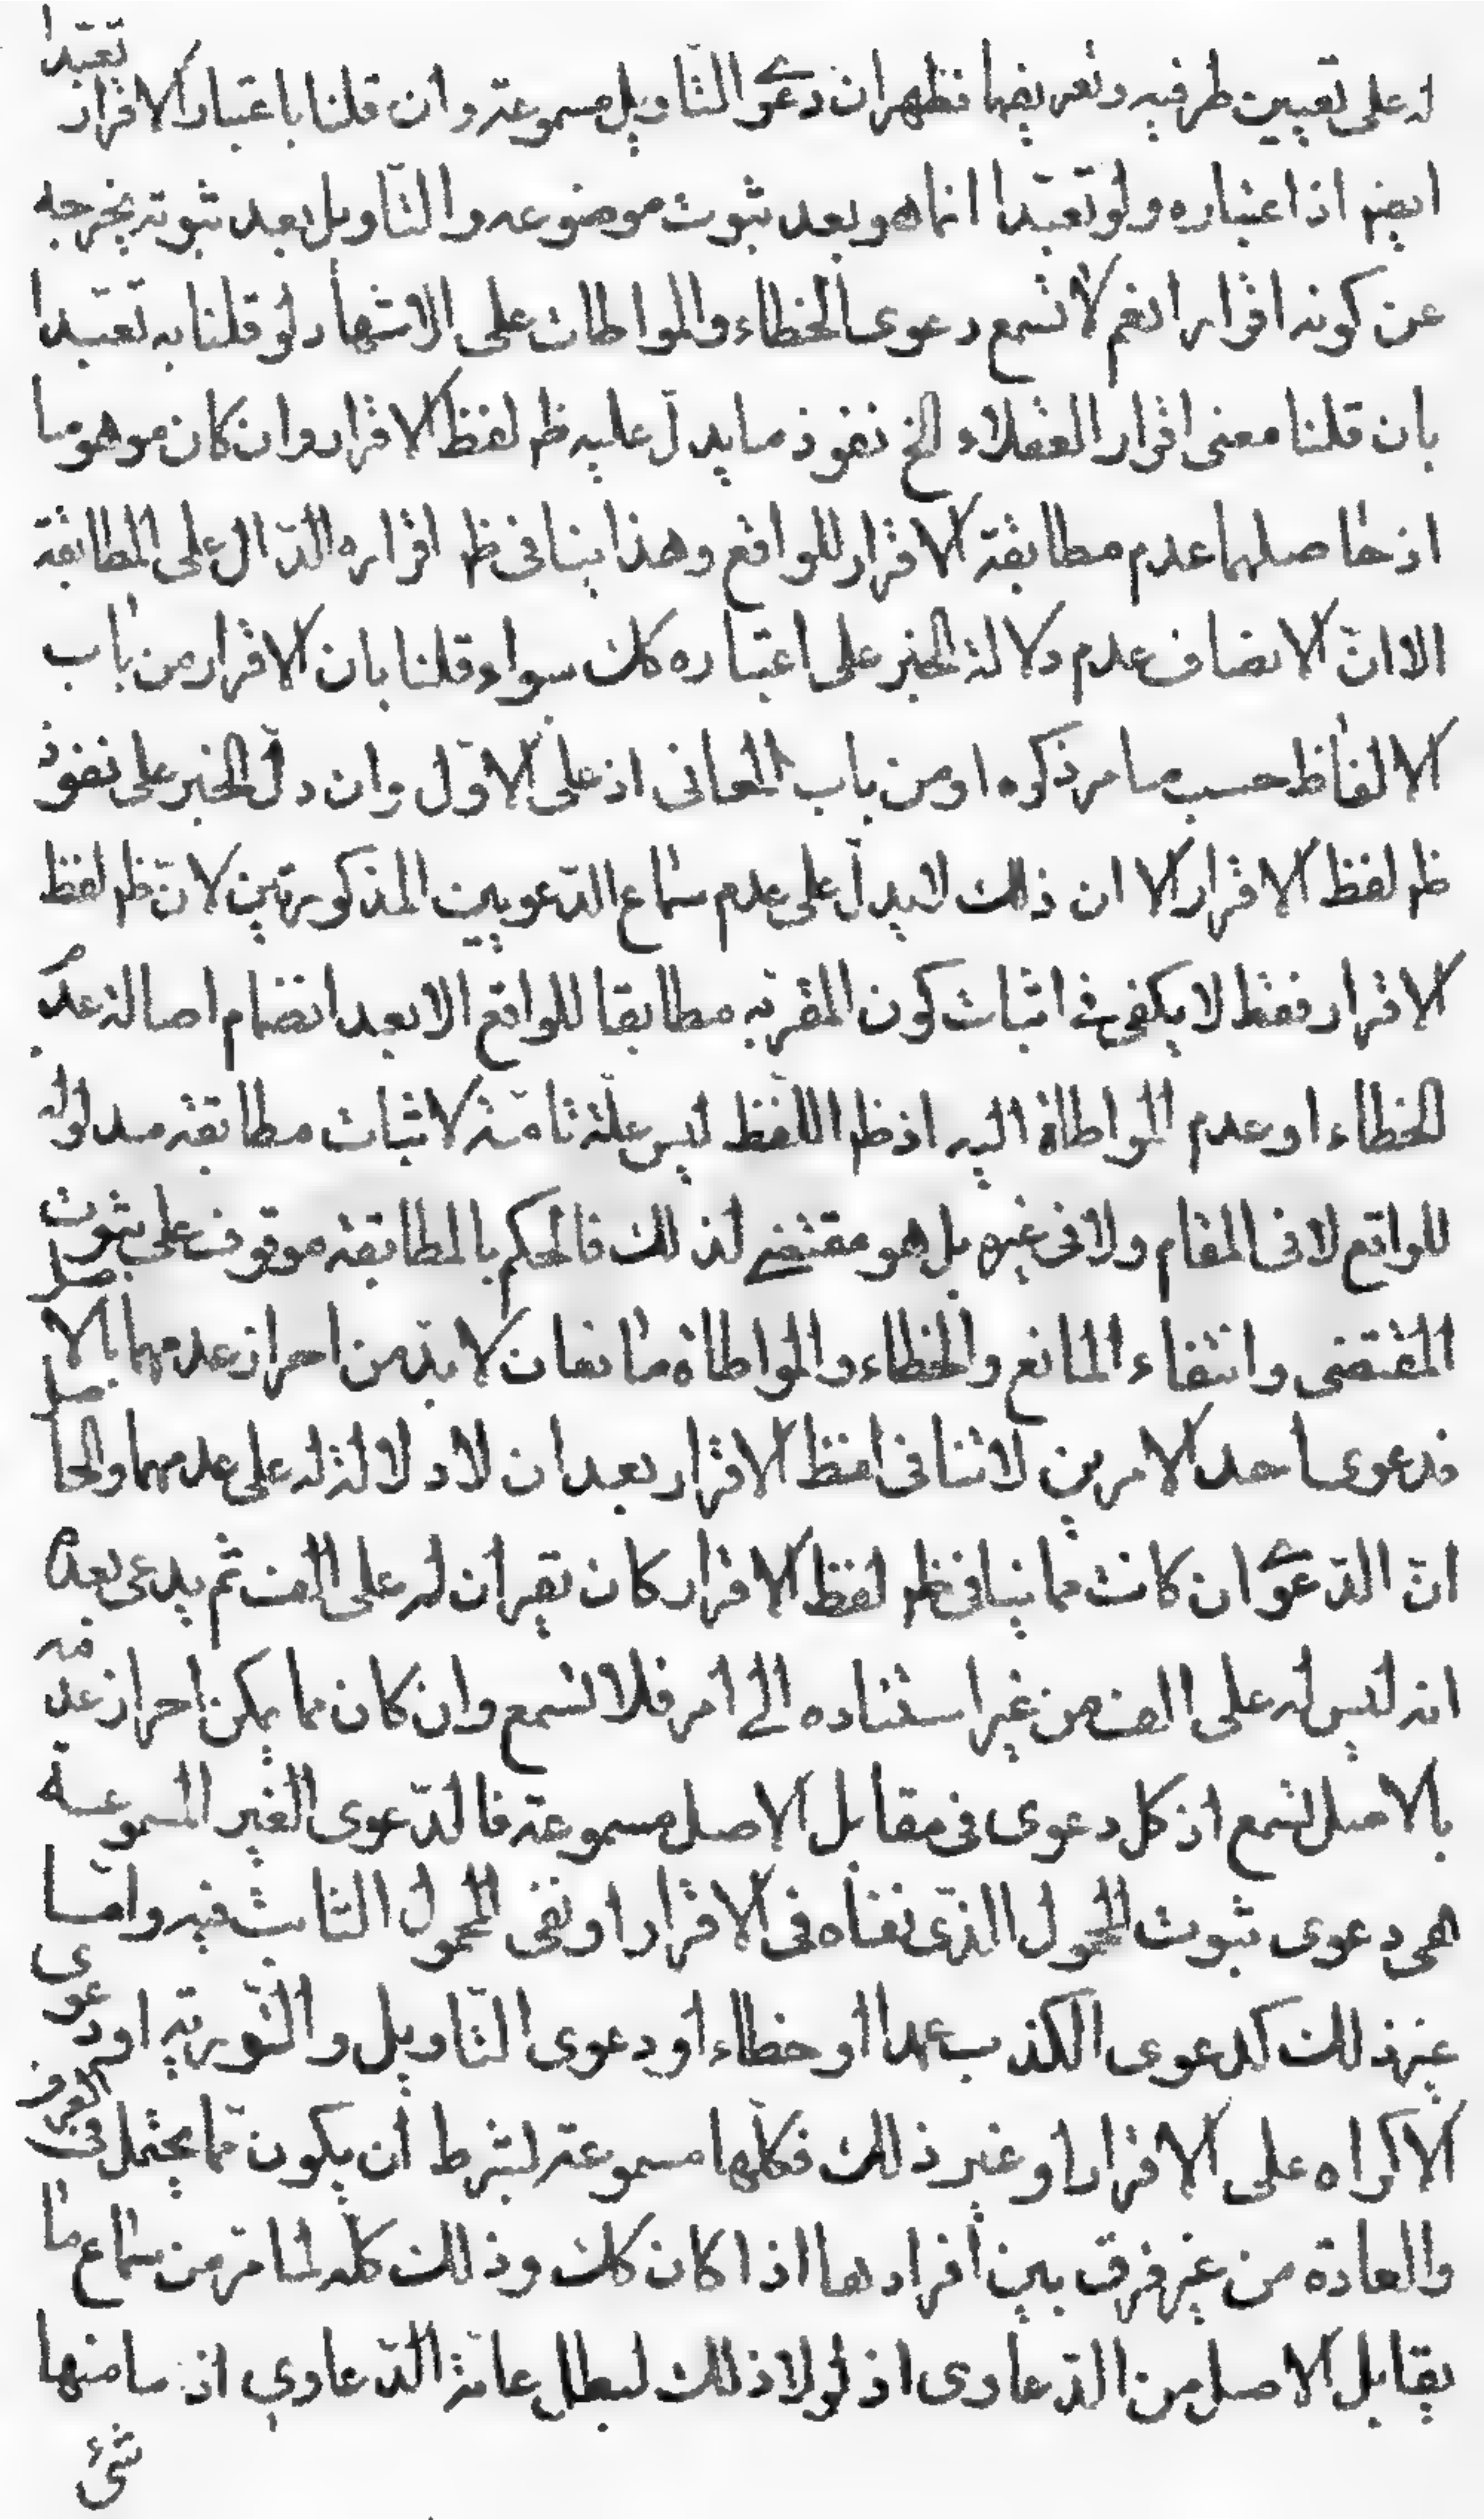 له على تعيين طرفيه وتعريضهما فظهر ان دعوى التاويل مسموعة وان قلنا باعتبار الاقرار تعبّدا
ايضم اذ اعتباره ولو تعبّدا انما هو بعد ثبوت موضوعه والتاويل بعد ثبوته يخرجه
عن كونه اقرارا نعم لا تسمع دعوى الخطاء والمواطات على الاشهاد لو قلنا به تعبّدا
بان قلنا معنى اقرار العقلاء الخ نفوذ ما يدلّ عليه ظم لفظ الاقرار وان كان موهوما
اذ حاصلهما عدم مطابقة الاقرار للواقع وهذا ينافى ظم اقراره الدّال على المطابقة
الا انّ الانصاف عدم دلالة الخبر على اعتباره كك سواء قلنا بان الاقرار من باب
الالفاظ حسب ما مر ذكره او من باب المعانى اذ على الاوّل وان دلّ الخبر على نفوذ
ظم لفظ الاقرار الا ان ذلك لا يدلّ على عدم سماع الدّعويين المذكورتين لانّ ظم لفظ
الاقرار فقط لا يكفى فى اثبات كون المقرّ به مطابقا للواقع الا بعد انضمام اصالة عدم
الخطاء او عدم المواطاة اليه اذ ظم اللفظ ليس علّة تامّة لاثبات مطابقة مدلوله
للواقع لا فى المقام ولا فى غيره بل هو مقتضى لذلك فالحكم بالمطابقة موقوف على ثبوت
المقتضى وانتفاء المانع والخطاء والمواطاة مانعان لا بدّ من احراز عدمهما بالاصل
فدعوى احد الامرين لا تنافى لفظ الاقرار بعد ان لا دلالة له على عدمهما والحاصل
انّ الدّعوى ان كانت مما ينافى ظم لفظ الاقرار كان يقر ان له على الف ثم يدعى بعده
انه ليس له على الف من غير استناده الى امر فلا تسمع وان كان مما يمكن احراز عدمه
بالاصل تسمع اذ كل دعوى فى مقابل الاصل مسموعة فالدّعوى الغير المسموعة
هى دعوى ثبوت المحمول الذّى نفاه فى الاقرار او نفى المحمول الثابت فيه وامّا
غير ذلك كدعوى الكذب عمدا او خطاء او دعوى التاويل والتّورية او دعوى
الاكراه على الاقرار او غير ذلك فكلّها مسموعة لشرط ان يكون ممّا يحتمل فى العرف
والعادة من غير فرق بين افرادها اذا كان كك وذلك كلّه لما مرّ من سماع ما
يقابل الاصل من الدّعاوى اذ لولا ذلك لبطل عامّة الدّعاوى اذ ما منها
شئ